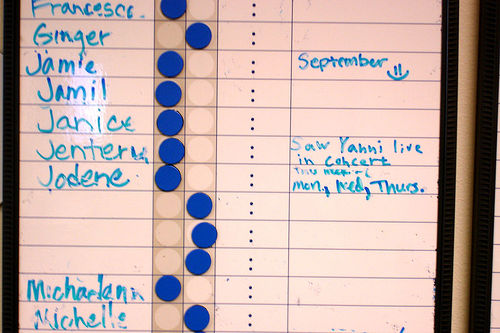 Francesca
Ginger
Jamie September
Jamil
Janice
Saw Yanni live
Jenteru in Concert
this week -
Jodene Mon, Wed, Thurs.
Michaelann
Michelle